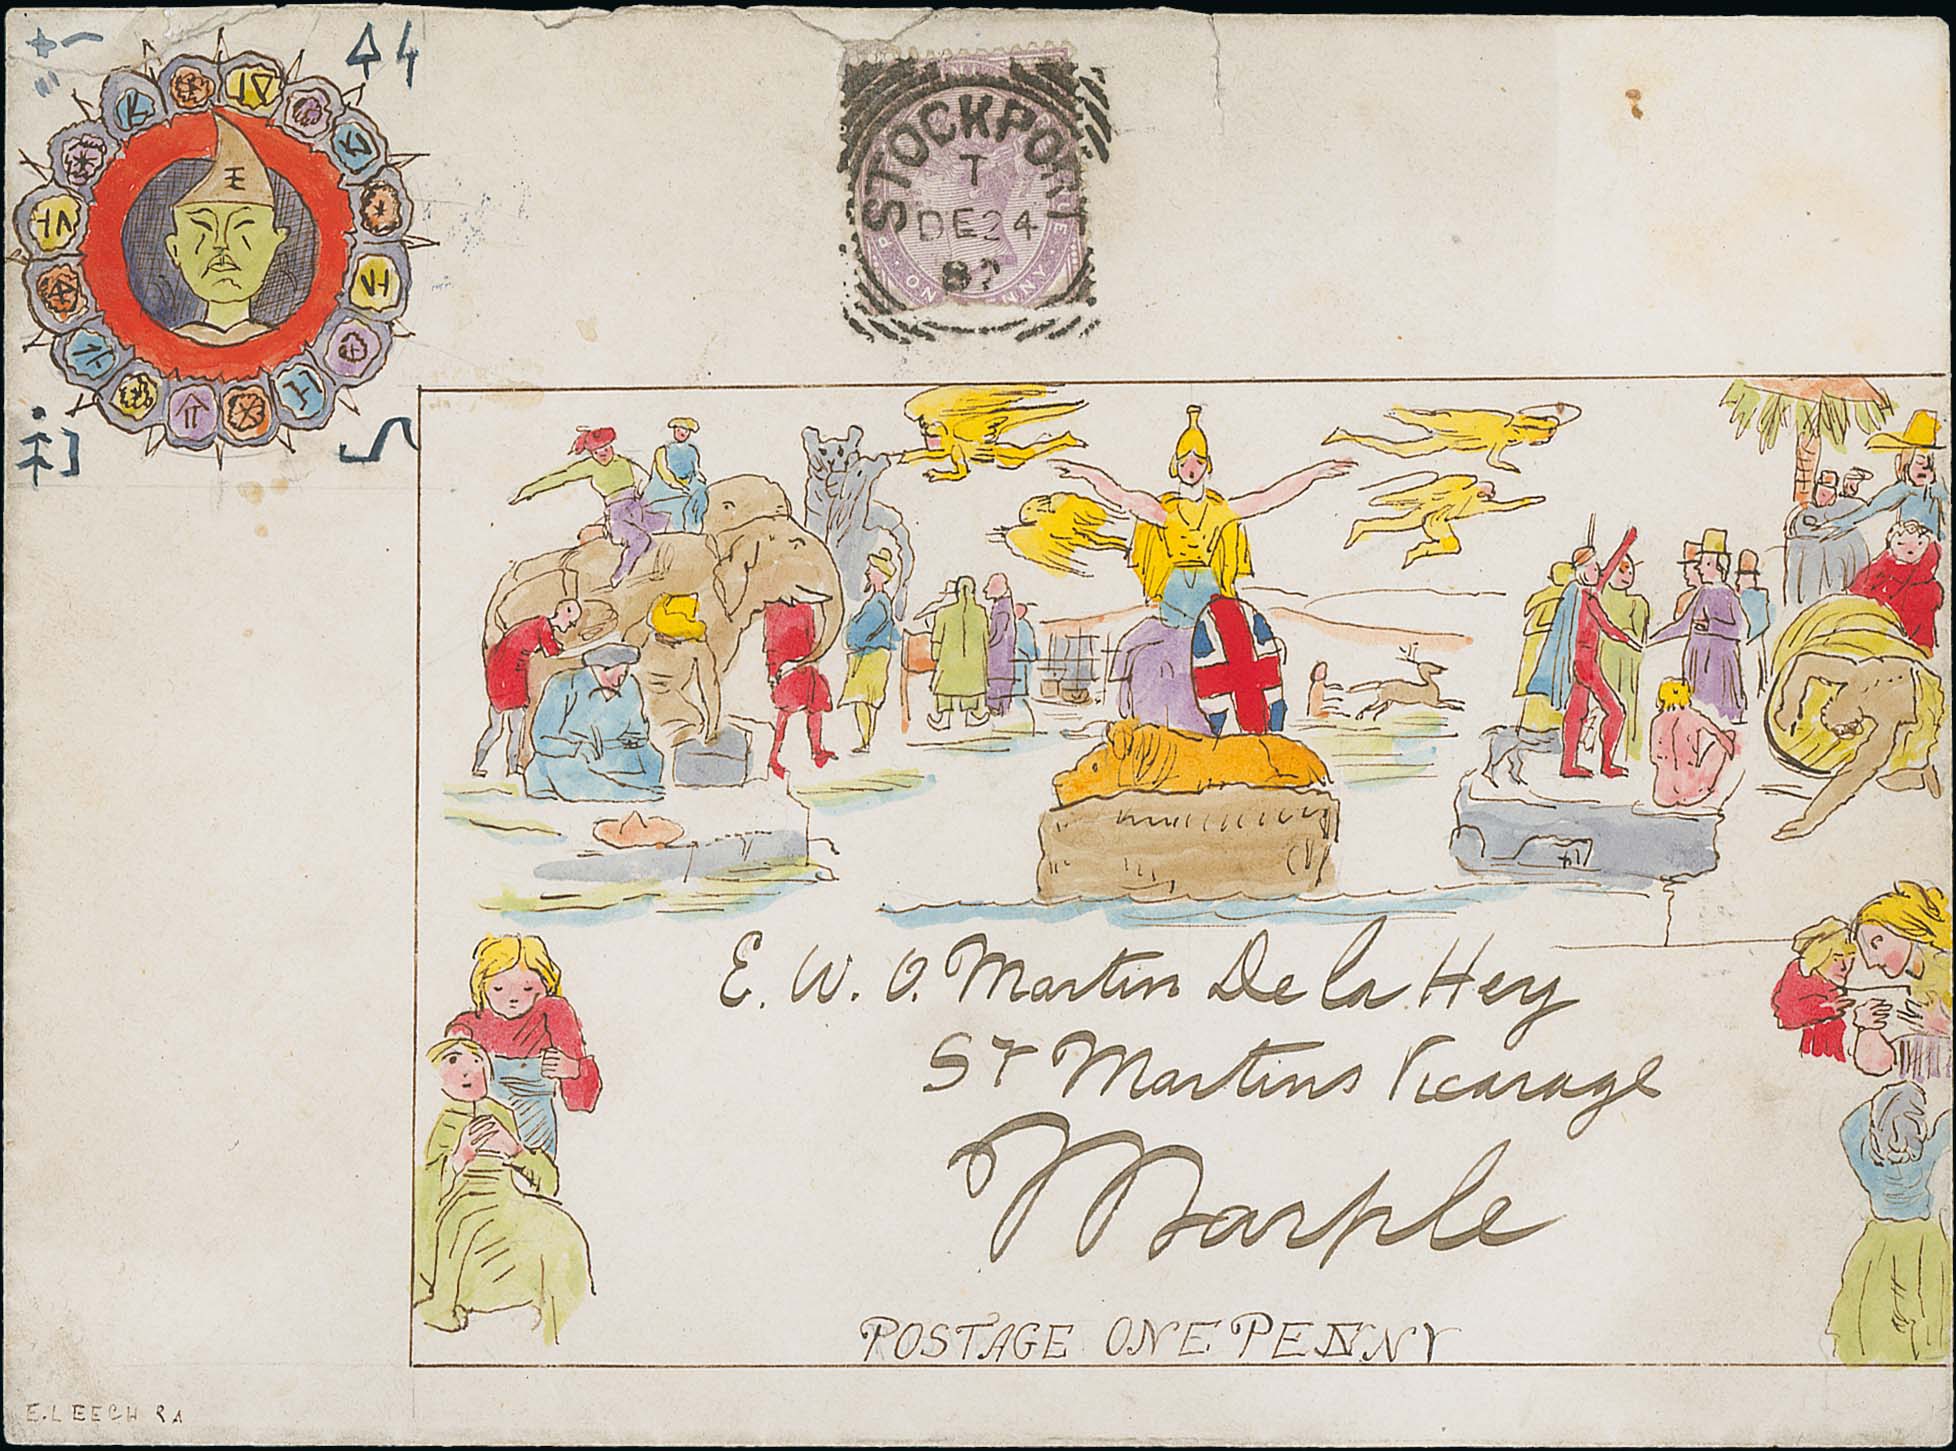 STOCKPORT
T
DE24
87
ONE PENNY
E. W. O. Martin De la Hey
St Martins Vicarage
Marple
POSTAGE ONE PENNY
E. LEECH RA